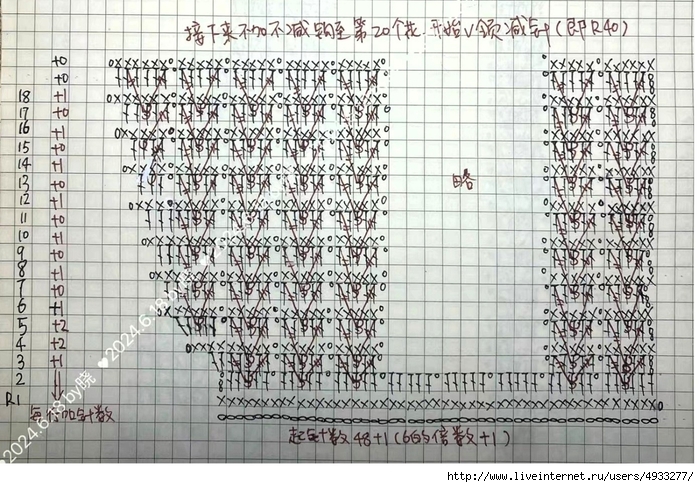 接下来不加不减钩至第20个花.开始V领减针(即R40)
+0
+0
18 +1
17 +0
16 +1
15 +0
14 +1
13 +0
12 +1
11 +0
10 +1
9 +0
8 +1
7 +0
6 +1
5 +2
4 +2
3 +1
2
R1
略
每行加针数
起针数48+1(6的倍数+1)
♥2024.6.18 by晓
♥2024.6.18 by晓
http://www.liveinternet.ru/users/4933277/